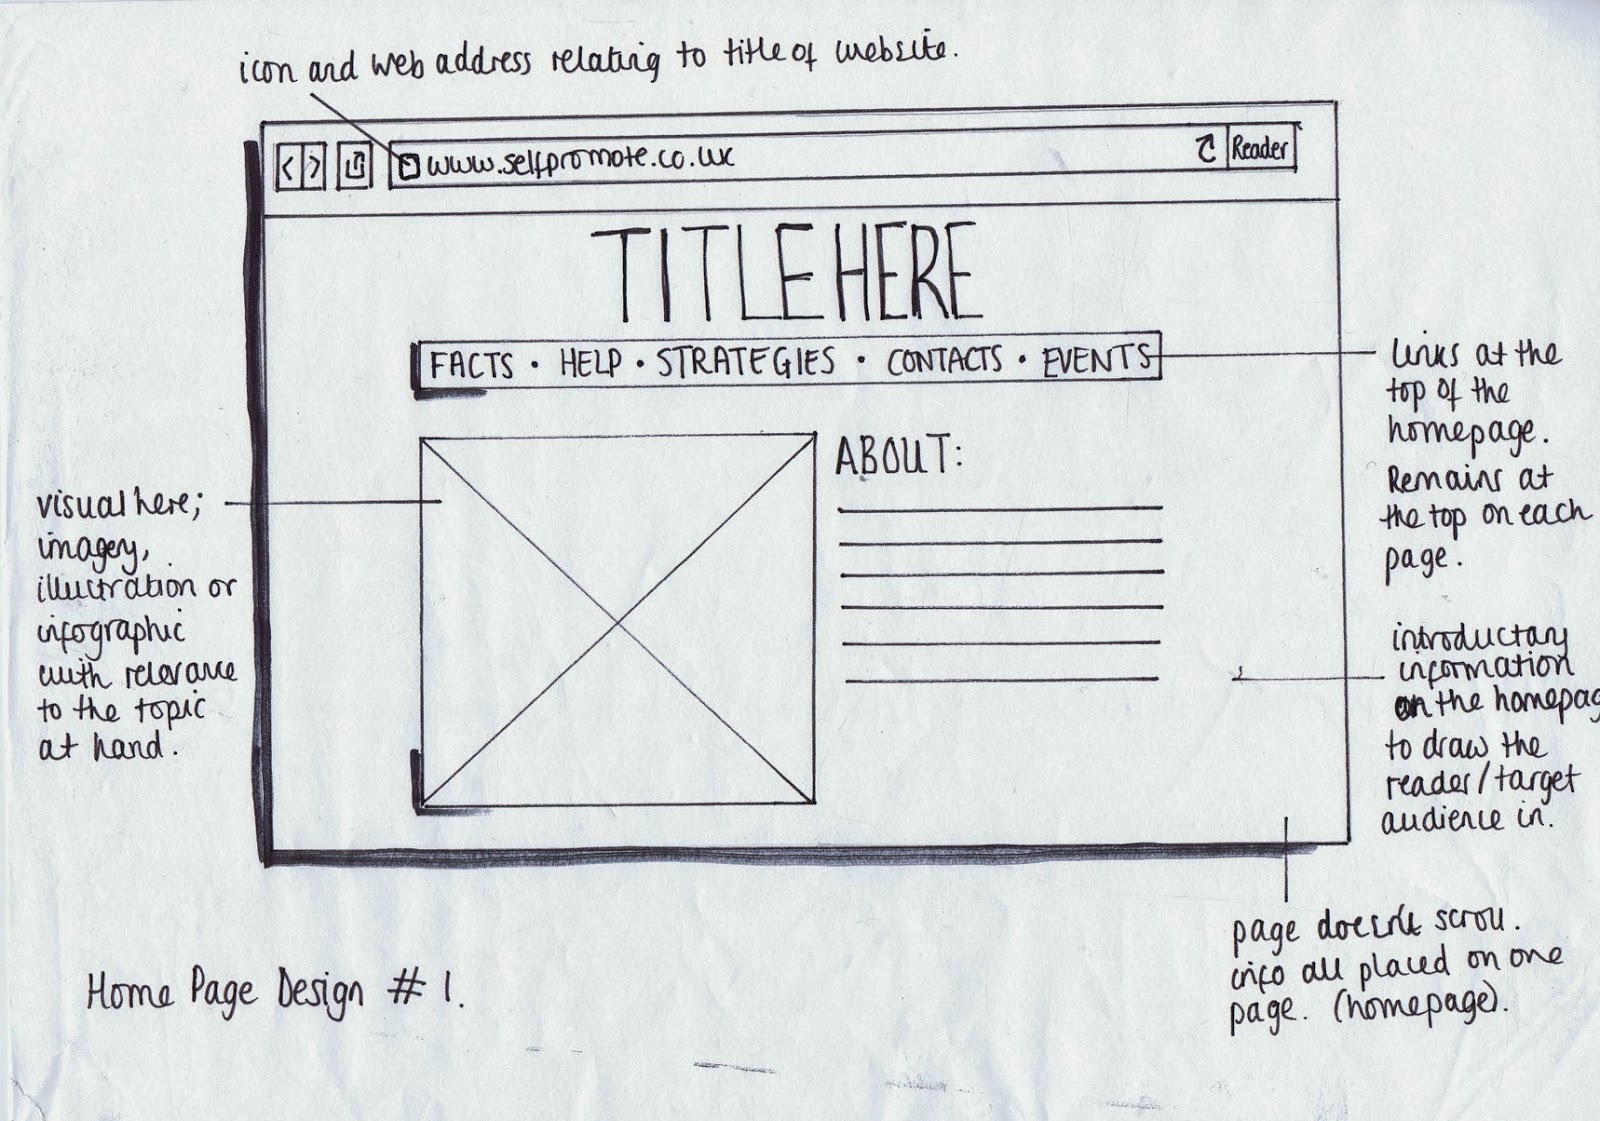 icon and web address relating to title of website.
www.selfpromote.co.uk
Reader
TITLE HERE
FACTS · HELP · STRATEGIES · CONTACTS · EVENTS
links at the
top of the
homepage.
Remains at
the top on each
page.
ABOUT:
visual here;
imagery,
illustration or
infographic
with relevance
to the topic
at hand.
introductary
information
on the homepag
to draw the
reader/target
audience in.
page doesn't scroll.
info all placed on one
page. (homepage).
Home Page Design # 1.